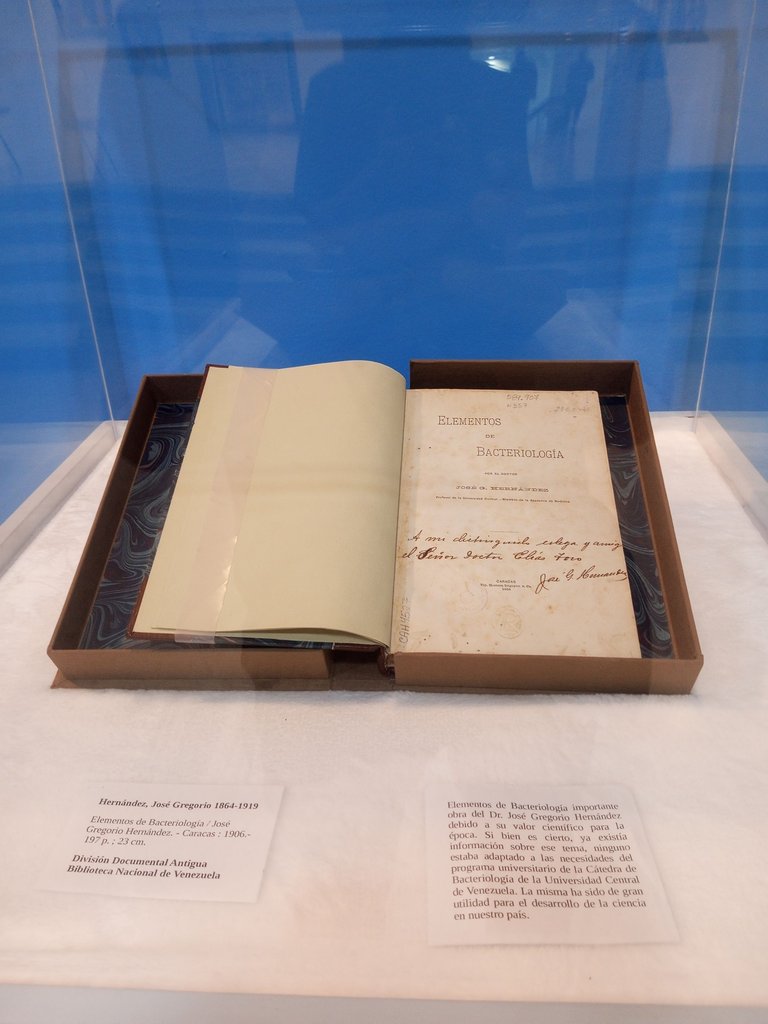 ELEMENTOS
DE
BACTERIOLOGÍA
POR EL DOCTOR
JOSÉ G. HERNÁNDEZ
Profesor de la Universidad Central.—Miembro de la Academia de Medicina
A mi distinguido colega y amigo
el Señor Doctor Elías Toro
José G Hernández
CARACAS
1906
Hernández, José Gregorio 1864-1919
Elementos de Bacteriología / José
Gregorio Hernández. - Caracas : 1906.-
197 p. ; 23 cm.
División Documental Antigua
Biblioteca Nacional de Venezuela
Elementos de Bacteriología importante
obra del Dr. José Gregorio Hernández
debido a su valor científico para la
época. Si bien es cierto, ya existía
información sobre ese tema, ninguno
estaba adaptado a las necesidades del
programa universitario de la Cátedra de
Bacteriología de la Universidad Central
de Venezuela. La misma ha sido de gran
utilidad para el desarrollo de la ciencia
en nuestro país.